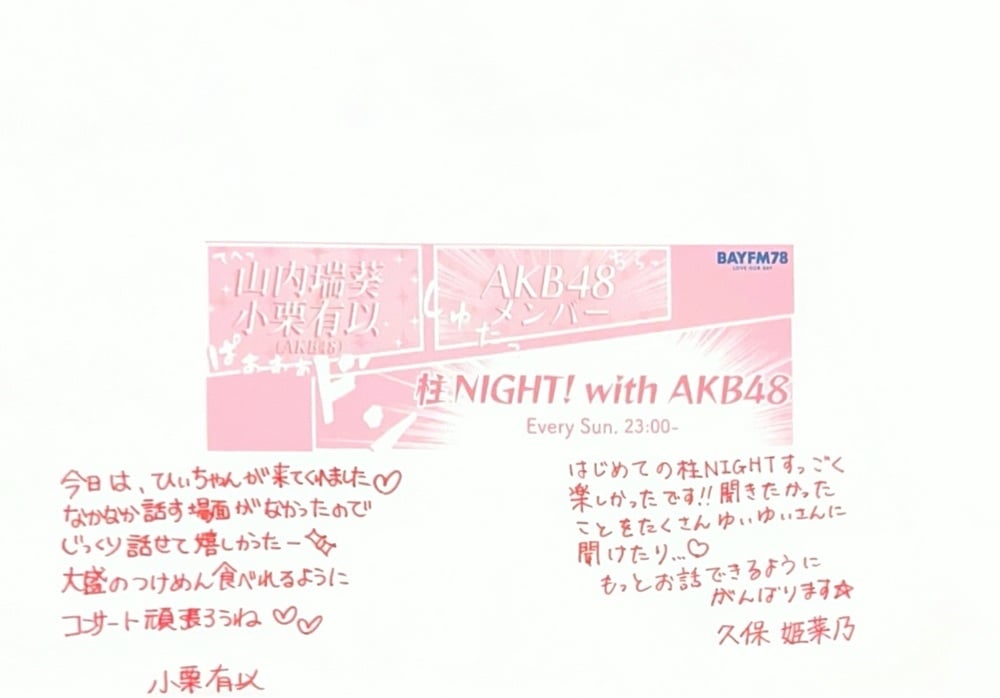 てへっ
山内瑞葵
小栗有以
(AKB48)
ぱぁぁぁぁ
AKB48
メンバー
しゅたっ
BAYFM78
LOVE OUR BAY
柱NIGHT! with AKB48
Every Sun. 23:00-
今日は、ひぃちゃんが来てくれました♡
なかなか話す場面がなかったので
じっくり話せて嬉しかったー
大盛のつけめん食べれるように
コンサート頑張ろうね♡♡
小栗有以
はじめての柱NIGHTすっごく
楽しかったです!!聞きたかった
ことをたくさんゆいゆいさんに
聞けたり...♡
もっとお話できるように
がんばります☆
久保 姫菜乃